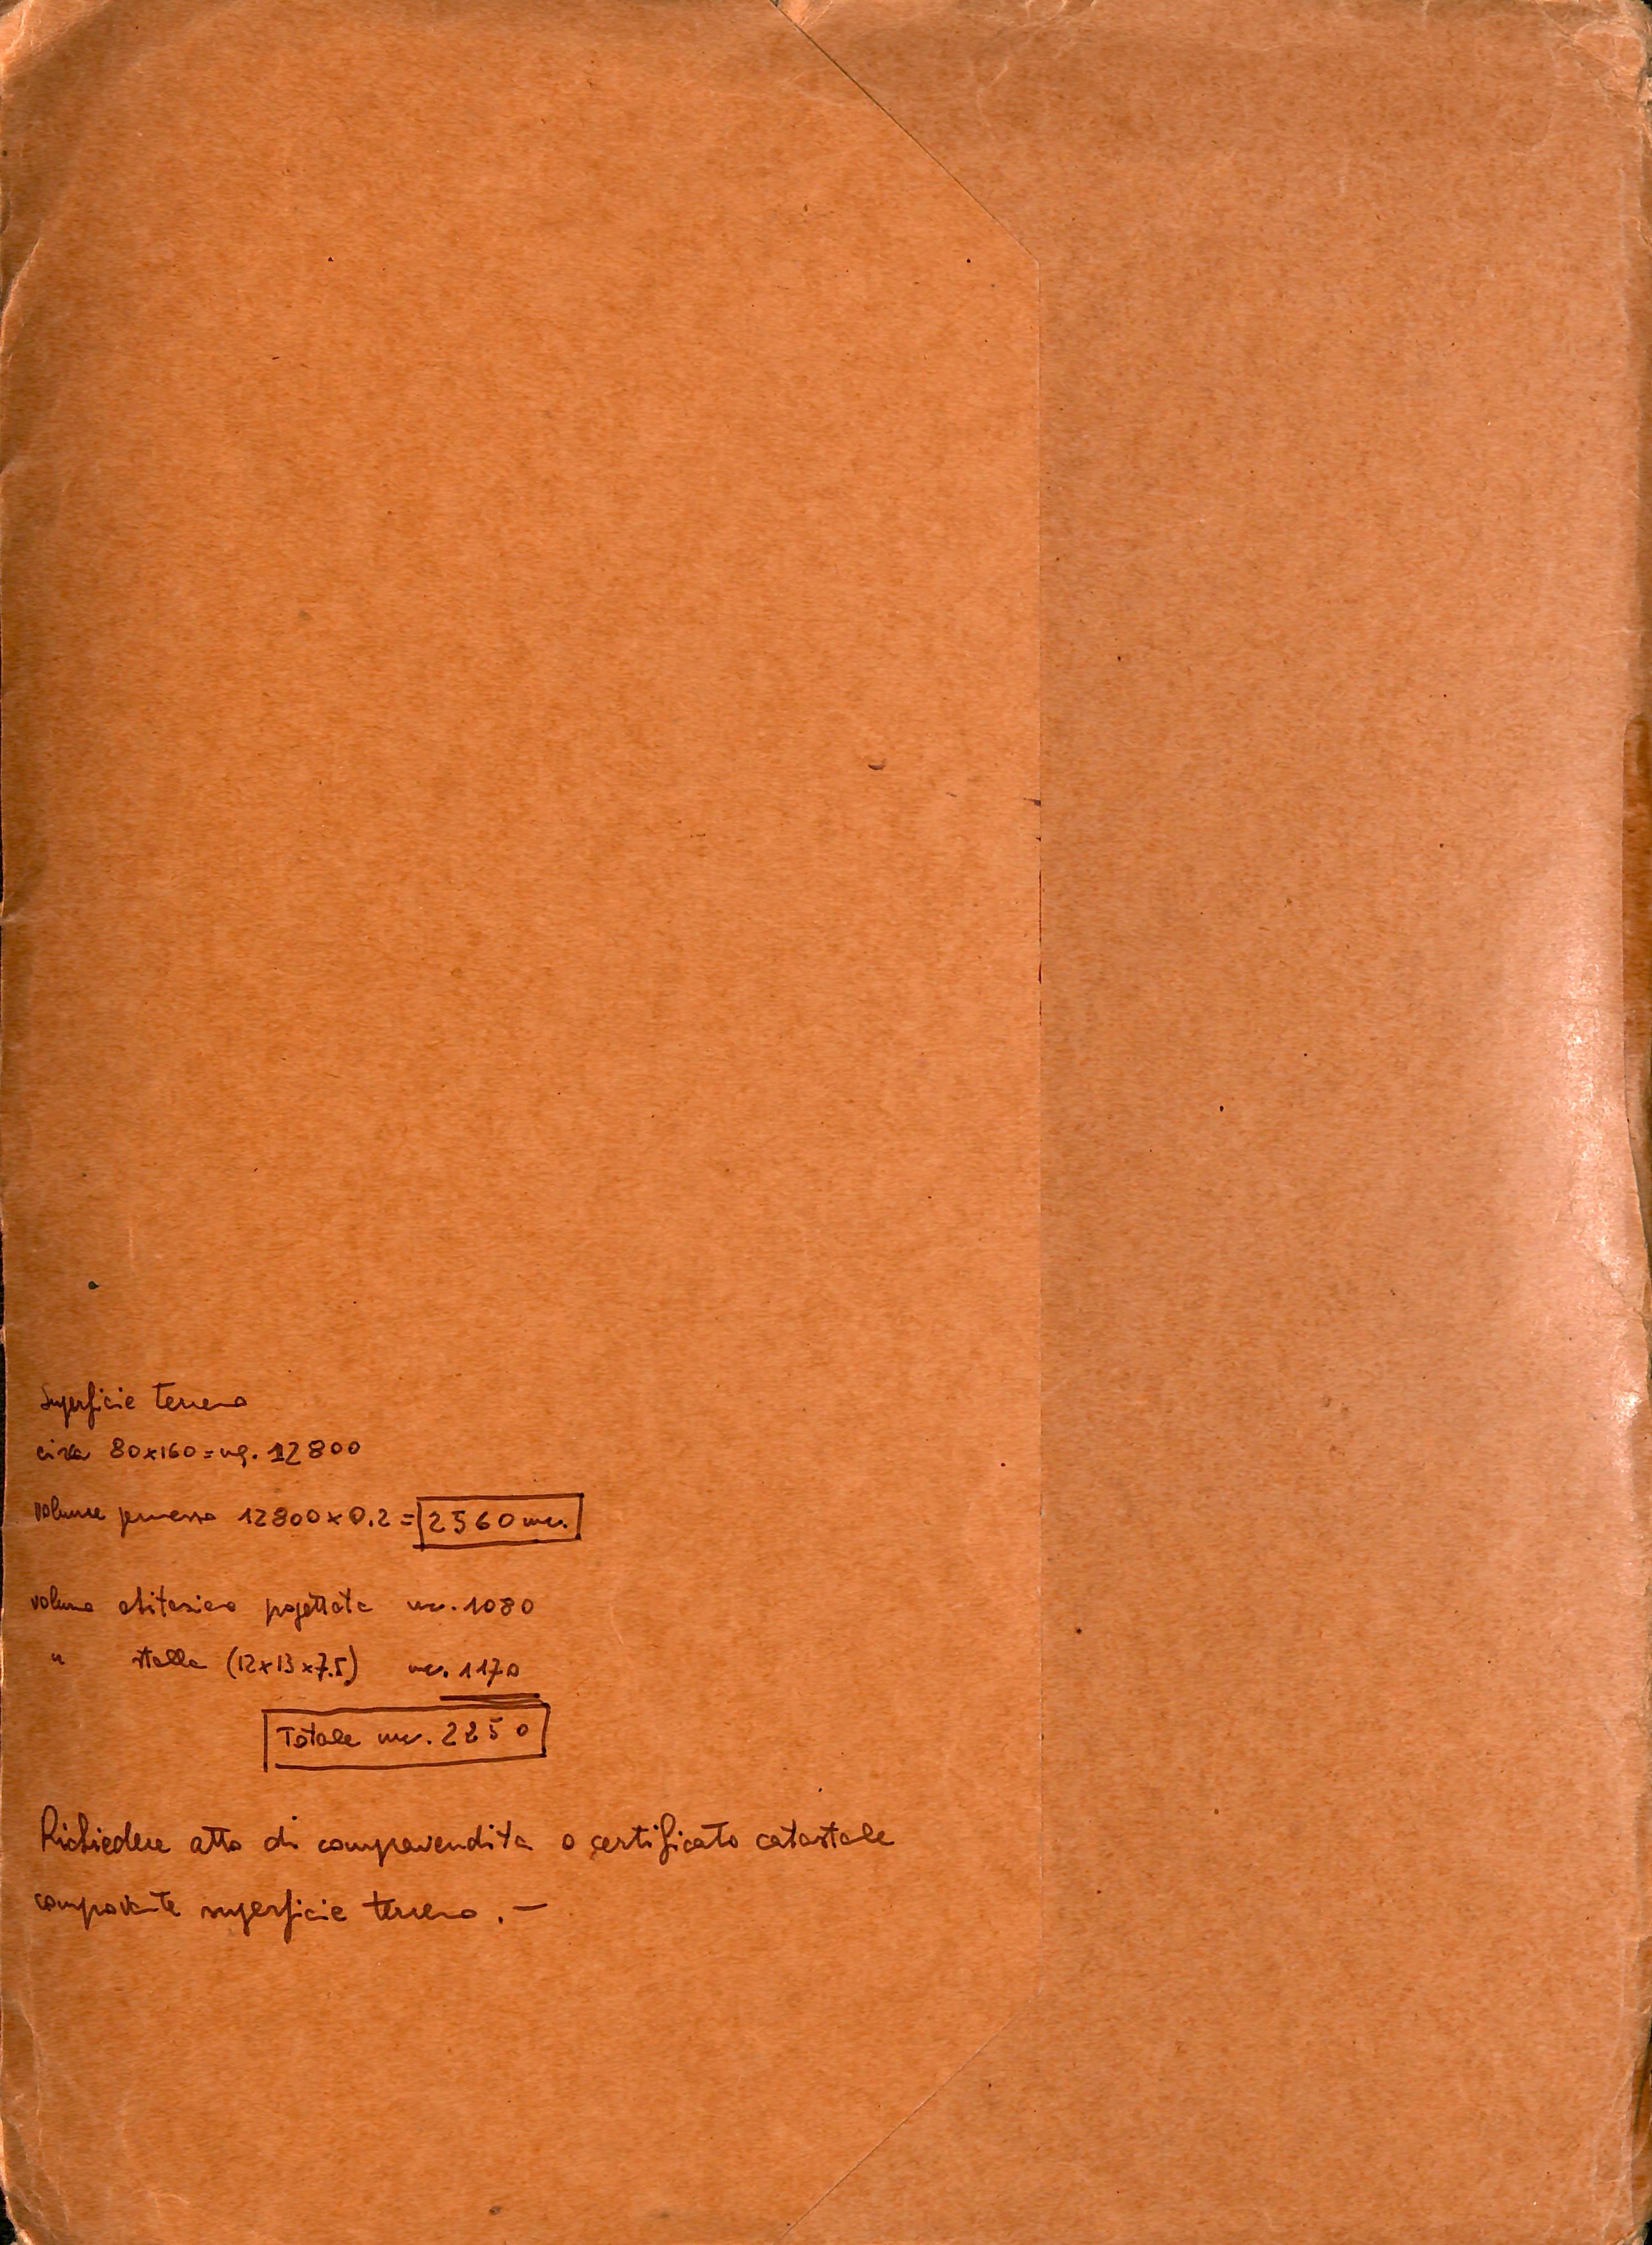 Superficie terreno
circa 80x160 = mq. 12800
volume permesso 12800 x 0.2 = 2560 mc.
volume abitazione progettata mc. 1080
" stalla (12x13x7.5) mc. 1170
Totale mc. 2250
Richiedere atto di compravendita o certificato catastale
comprovante superficie terreno . —